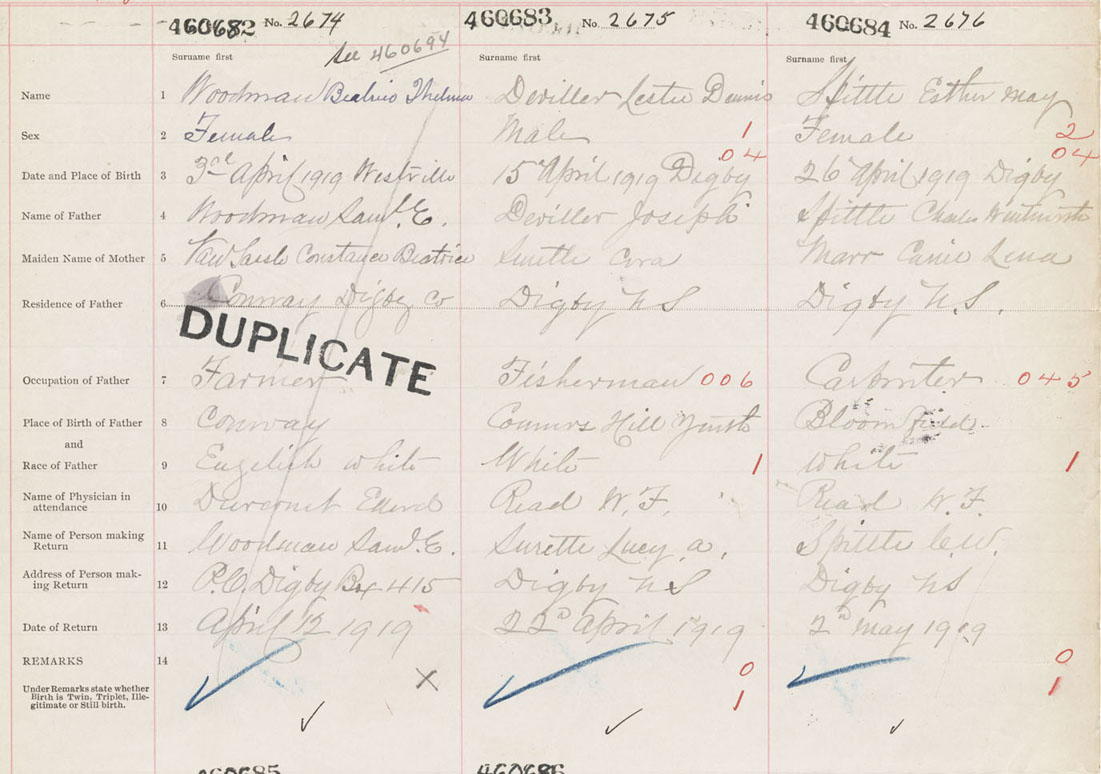 460682 No. 2674 460683 No. 2675 460684 No. 2676
See 460694
Surname first Surname first Surname first
Name 1 Woodman Beatrice Thelma Deviller Leslie Dennis Spittle Esther May
Sex 2 Female Male 1 Female 2
04 04
Date and Place of Birth 3 3rd April 1919 Westville 15 April 1919 Digby 26 April 1919 Digby
Name of Father 4 Woodman Saml. E. Deviller Joseph Spittle Charles Wentworth
Maiden Name of Mother 5 Constance Beatrice Cora Marr Lena
Residence of Father 6 Conway Digby Co Digby N S Digby N. S.
DUPLICATE
Occupation of Father 7 Farmer Fisherman 006 Carpenter 045
Place of Birth of Father 8 Conway Hill Bloomfield
and
Race of Father 9 English White White 1 White 1
Name of Physician in
attendance 10 Read W. F. Read W. F.
Name of Person making
Return 11 Woodman Saml. E. Surette Lucy A. Spittle C. W.
Address of Person mak-
ing Return 12 P.O. Digby Bx 415 Digby N S Digby N S
Date of Return 13 April 12 1919 22d April 1919 2d May 1919
REMARKS 14 0 0
Under Remarks state whether
Birth is Twin, Triplet, Ille-
gitimate or Still birth.
X 1 1
460685 460686